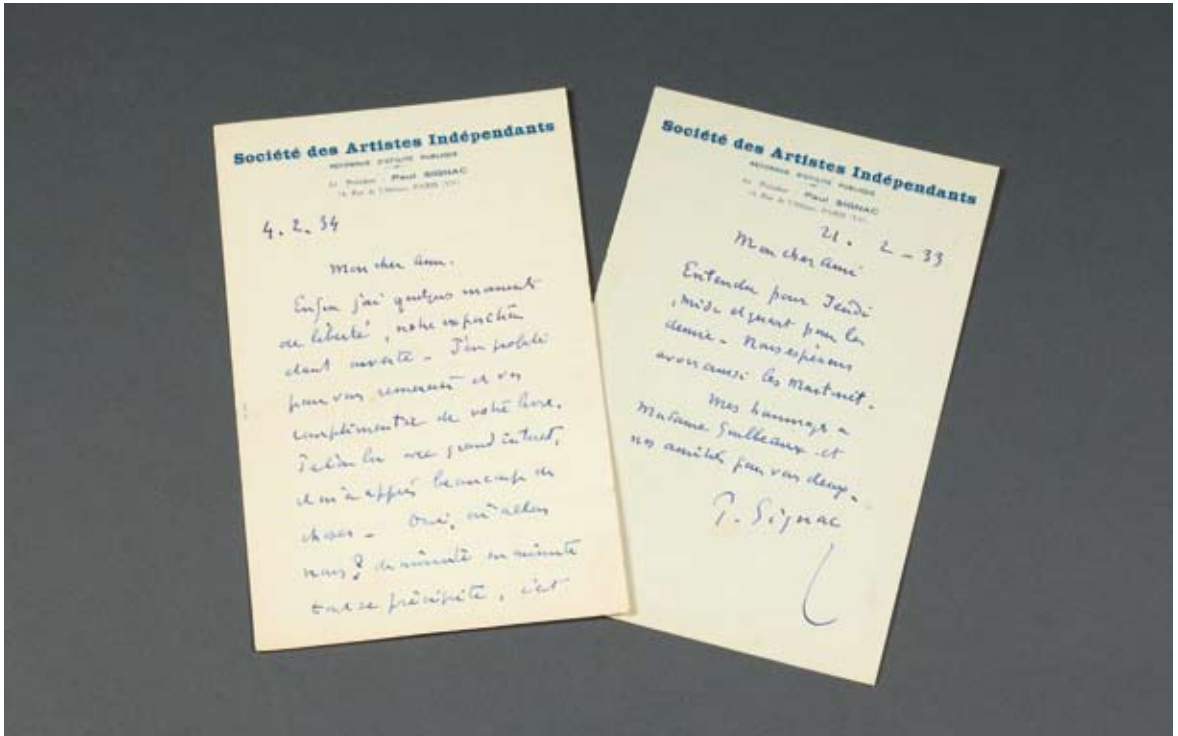 Société des Artistes Indépendants
RECONNUE D'UTILITÉ PUBLIQUE
Le Président : Paul SIGNAC
14, Rue de l'Abbaye, PARIS (VIe)
4. 2. 34
Mon cher ami.
Enfin j'ai quelques moments
de liberté, notre exposition
étant ouverte - J'en profite
pour vous remercier et vous
complimenter de votre livre.
Je l'ai lu avec grand intérêt,
il m'a appris beaucoup de
choses - Oui, où allons
nous ? de minute en minute
tout se précipite, c'est
Société des Artistes Indépendants
RECONNUE D'UTILITÉ PUBLIQUE
Le Président : Paul SIGNAC
14, Rue de l'Abbaye, PARIS (VIe)
21. 2 - 33
Mon cher ami
Entendu pour Jeudi
, midi et quart pour la
demie - Nous espérons
avoir aussi les Martinet.
Mes hommages à
Madame Guilbeaux et
nos amitiés pour vous deux.
P. Signac